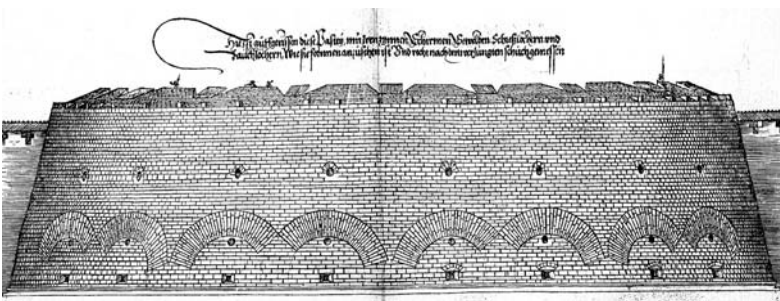 Hie ist auffgerissen dise Pastey, mit iren zynnen Schermen Gewelben Schußlöchern vnd
Rauchlöchern, Wie sie fornnen an zusehen ist Vnd recht nach dem verjungten schuch gemessen